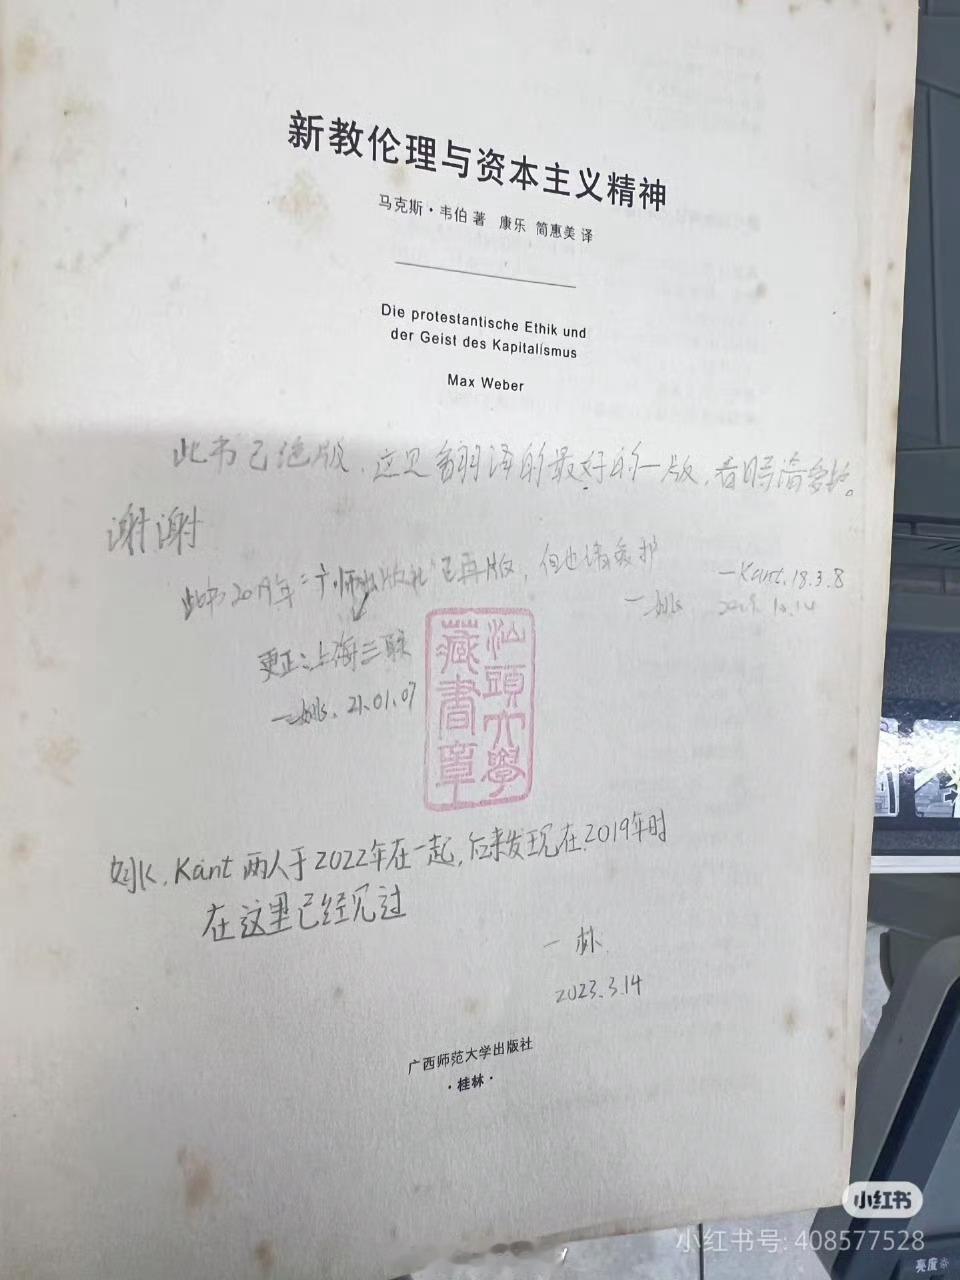 新教伦理与资本主义精神
马克斯·韦伯 著 康乐 简惠美 译
Die protestantische Ethik und
der Geist des Kapitalismus
Max Weber
此书已绝版，这是翻译的最好的一版，看时请爱护。
谢谢
—Kant. 18.3.8
此书2019年"广师出版社"已再版，但也请爱护
—姚 10.14
更正：上海三联
—姚. 21.01.07
汕頭大學
藏書章
姚、Kant 两人于2022年在一起，后来发现在2019年时
在这里已经见过
—林
2023.3.14
广西师范大学出版社
·桂林·
小红书
小红书号: 408577528
亮度